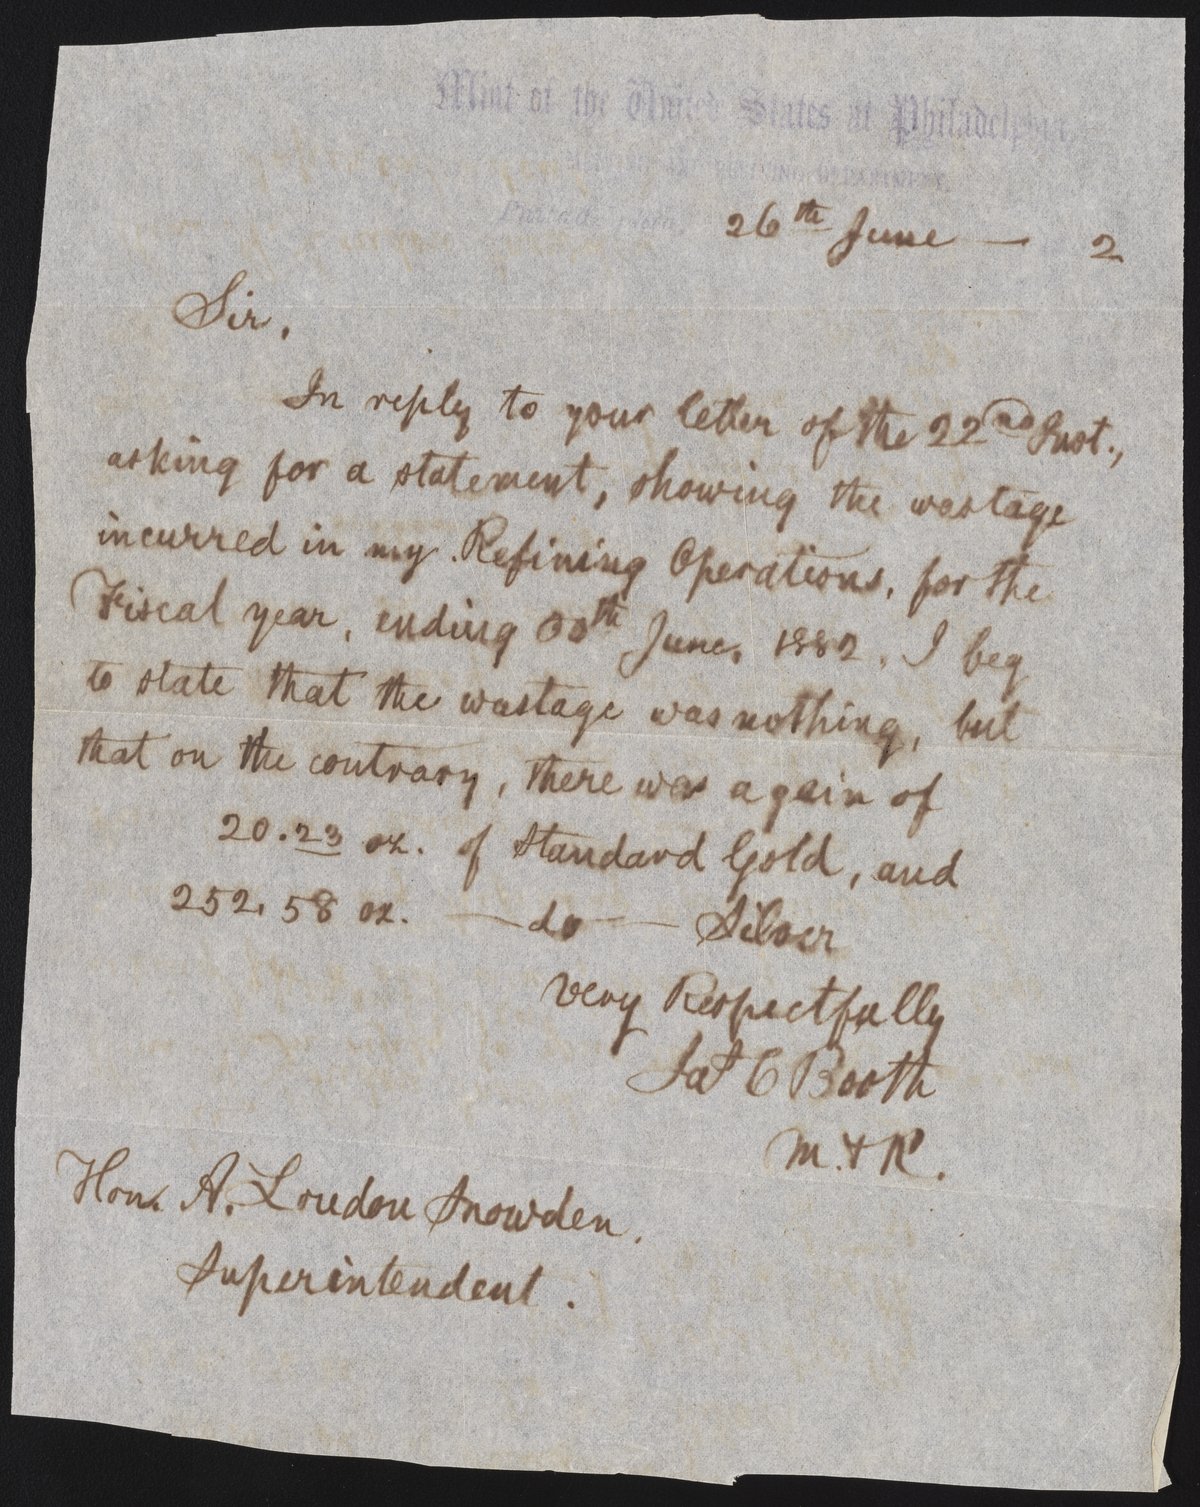 Mint of the United States at Philadelphia
REFINING DEPARTMENT
26th June — 2
Sir.
In reply to your letter of the 22nd Inst.,
asking for a statement, showing the wastage
incurred in my Refining Operations, for the
Fiscal year, ending 30th June, 1882, I beg
to state that the wastage was nothing, but
that on the contrary, there was a gain of
20.23 oz. of Standard Gold, and
252.58 oz. — do — Silver
Very Respectfully
Jas C Booth
M. & R.
Hon. A. Loudon Snowden.
Superintendent.